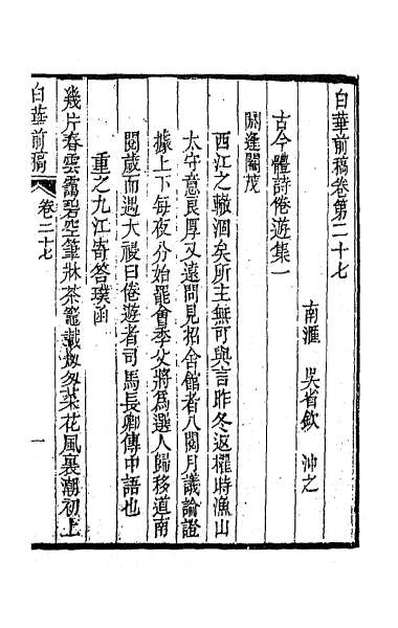 白華前稿卷第二十七
南滙 吳省欽 沖之
古今體詩倦遊集一
閼逢閹茂
西江之轍涸矣所主無可與言昨冬返櫂時漁山
太守意良厚又遠問見招舍館者八閱月議論證
據上下每夜分始罷會季父將為選人歸移道南
閱歲而遇大祲曰倦遊者司馬長卿傳中語也
重之九江寄答璞函
幾片春雲黏碧空筆牀茶竈載怱怱菜花風裏潮初上
白華前稿
卷二十七
一